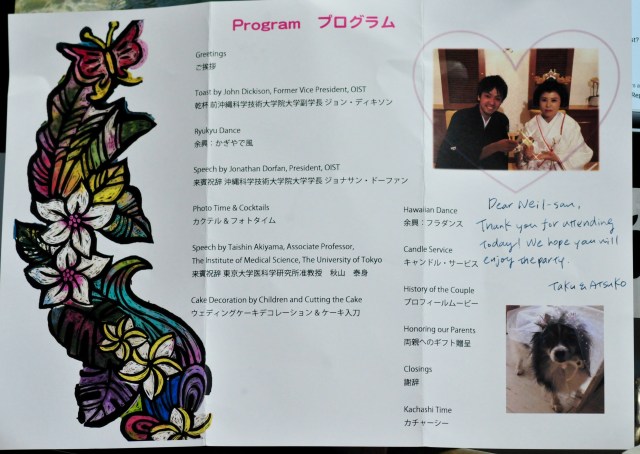 Program プログラム
Greetings
ご挨拶
Toast by John Dickison, Former Vice President, OIST
乾杯 前沖縄科学技術大学院大学副学長 ジョン・ディキソン
Ryukyu Dance
余興：かぎやで風
Speech by Jonathan Dorfan, President, OIST
来賓祝辞 沖縄科学技術大学院大学学長 ジョナサン・ドーファン
Photo Time & Cocktails
カクテル & フォトタイム
Speech by Taishin Akiyama, Associate Professor,
The Institute of Medical Science, The University of Tokyo
来賓祝辞 東京大学医科学研究所准教授 秋山 泰身
Cake Decoration by Children and Cutting the Cake
ウェディングケーキデコレーション & ケーキ入刀
Hawaiian Dance
余興：フラダンス
Candle Service
キャンドル・サービス
History of the Couple
プロフィールムービー
Honoring our Parents
両親へのギフト贈呈
Closings
謝辞
Kachashi Time
カチャーシー
Dear Neil-san,
Thank you for attending
today! We hope you will
enjoy the party.
Taku & Atsuko